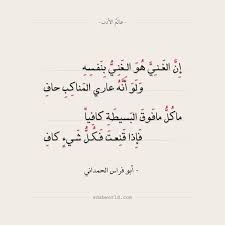 - عالم الأدب -
إِنَّ الغَنِيَّ هُوَ الغَنِيُّ بِنَفسِهِ
وَلَو أَنَّهُ عاري المَناكِبِ حافِ
ماكُلُّ مافَوقَ البَسيطَةِ كافِياً
فَإِذا قَنِعتَ فَكُلُّ شَيءٍ كافِ
- أبو فراس الحمداني -
adabworld.com